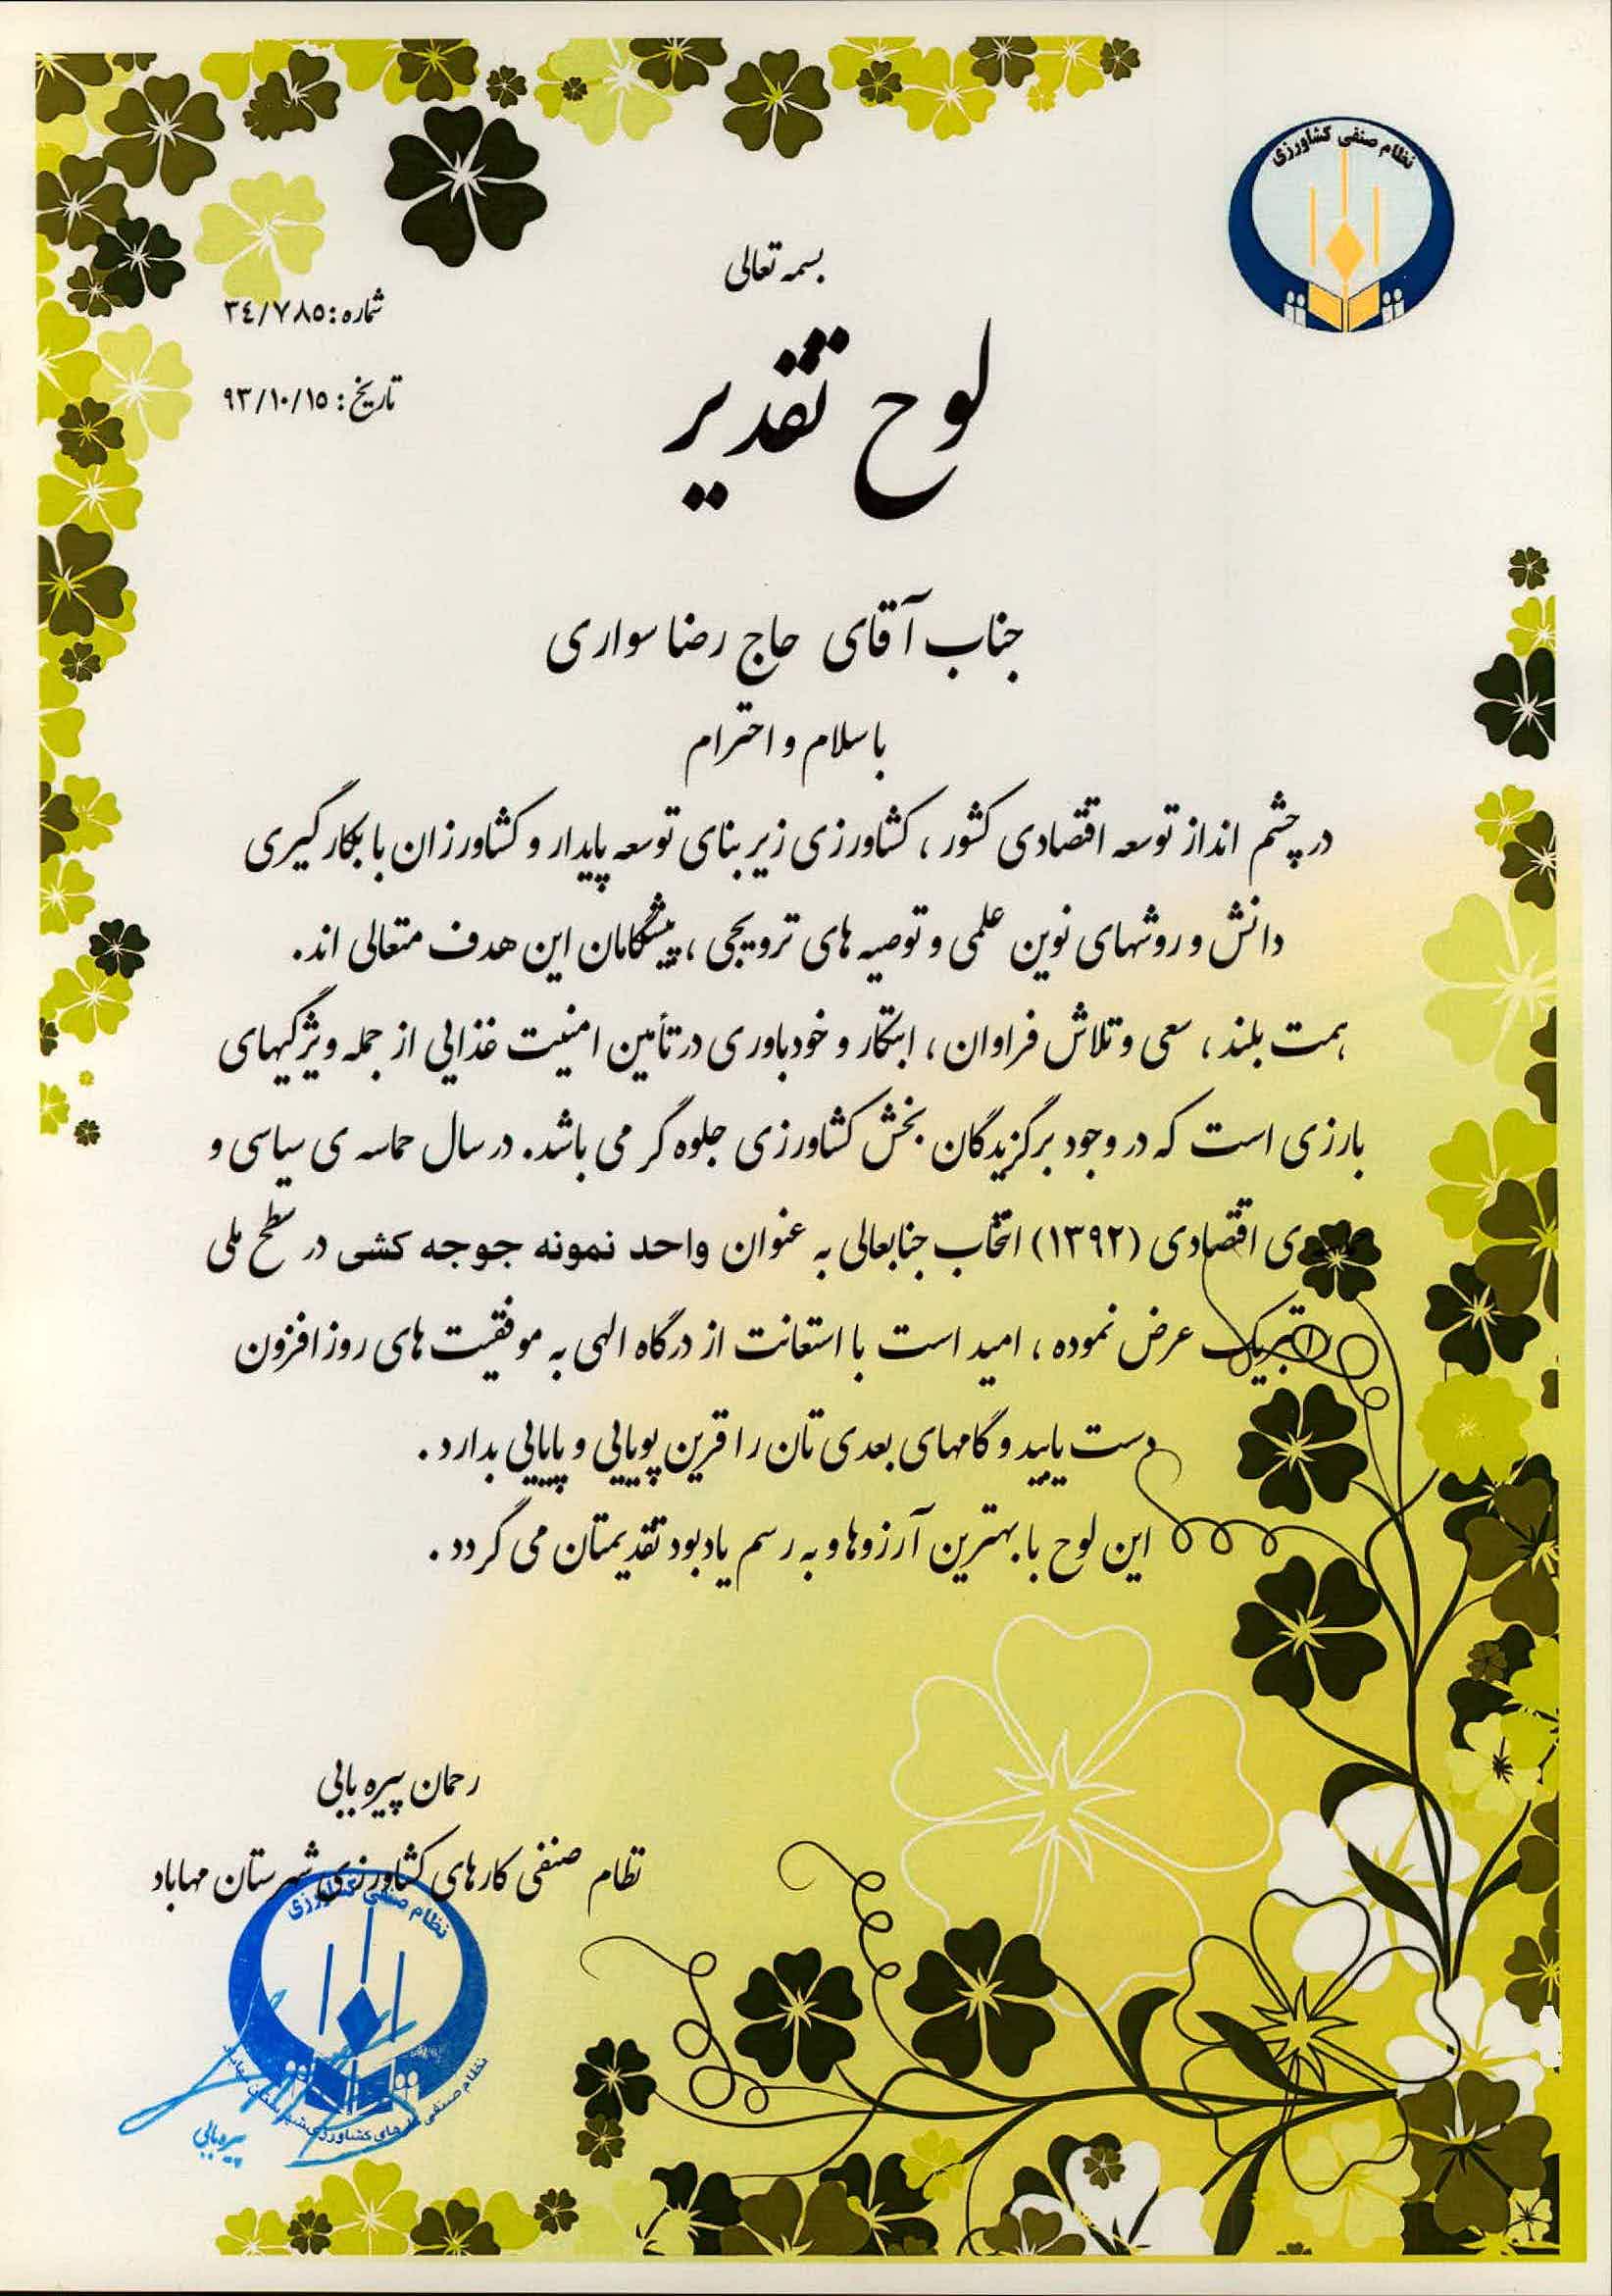 نظام صنفی کشاورزی
بسمه تعالی
شماره: ۳۴/۷۸۵
تاریخ: ۹۳/۱۰/۱۵
لوح تقدیر
جناب آقای حاج رضا سواری
با سلام و احترام
در چشم انداز توسعه اقتصادی کشور ، کشاورزی زیر بنای توسعه پایدار و کشاورزان با بکارگیری
دانش و روشهای نوین علمی و توصیه های ترویجی ، پیشگامان این هدف متعالی اند.
همت بلند ، سعی و تلاش فراوان ، ابتکار و خودباوری در تأمین امنیت غذایی از جمله ویژگیهای
بارزی است که در وجود برگزیدگان بخش کشاورزی جلوه گر می باشد. در سال حماسه ی سیاسی و
ی اقتصادی (۱۳۹۲) انتخاب جنابعالی به عنوان واحد نمونه جوجه کشی در سطح ملی
را تبریک عرض نموده ، امید است با استعانت از درگاه الهی به موفقیت های روز افزون
دست یابید و گامهای بعدی تان را قرین پویایی و پایایی بدارد .
این لوح با بهترین آرزوها و به رسم یادبود تقدیمتان می گردد .
رحمان پیره بابی
نظام صنفی کارهای کشاورزی شهرستان مهاباد
نظام صنفی کشاورزی
نظام صنفی کارهای کشاورزی شهرستان مهاباد